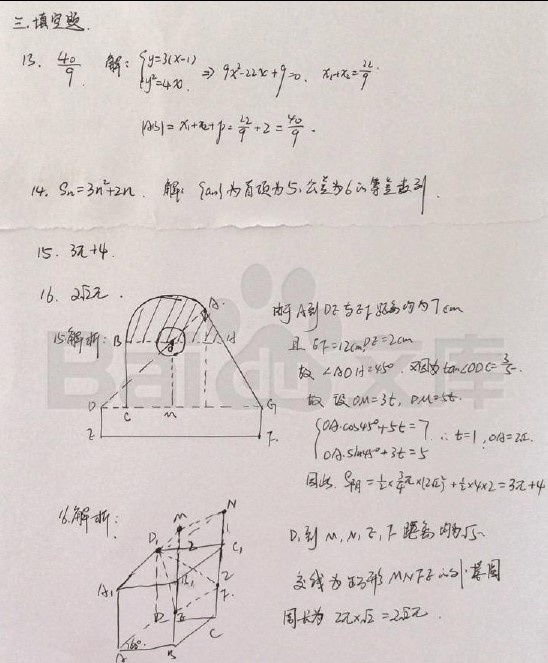 三.填空题.
13. 40/9 解: {y=3(x-1) y²=4x ⇒ 9x²-22x+9=0. x₁+x₂=22/9
|AB|=x₁+x₂+p=22/9+2=40/9.
14. Sn=3n²+2n. 解: {an}为首项为5,公差为6的等差数列.
15. 3π+4.
16. 2√2π.
15解析:
A
B
H
D
C
M
G
E
F
由于A到DE与EF距离均为7cm
且EF=12cm,DE=2cm
故∠AOH=45°.又因为tan∠ODC=3/5.
故设OM=3t,DM=5t.
{OA·cos45°+5t=7 OA·sin45°+3t=5 ∴t=1,OA=2√2.
因此S阴=½×¾π×(2√2)²+½×4×2=3π+4
16.解析:
N
M
D₁
2
C₁
A₁
B₁
2
F
D
E
C
60°
A
B
D₁到M,N,E,F距离均为√5.
交线为正方形MNFE的外接圆
周长为2π×√2=2√2π.
Bai 文库